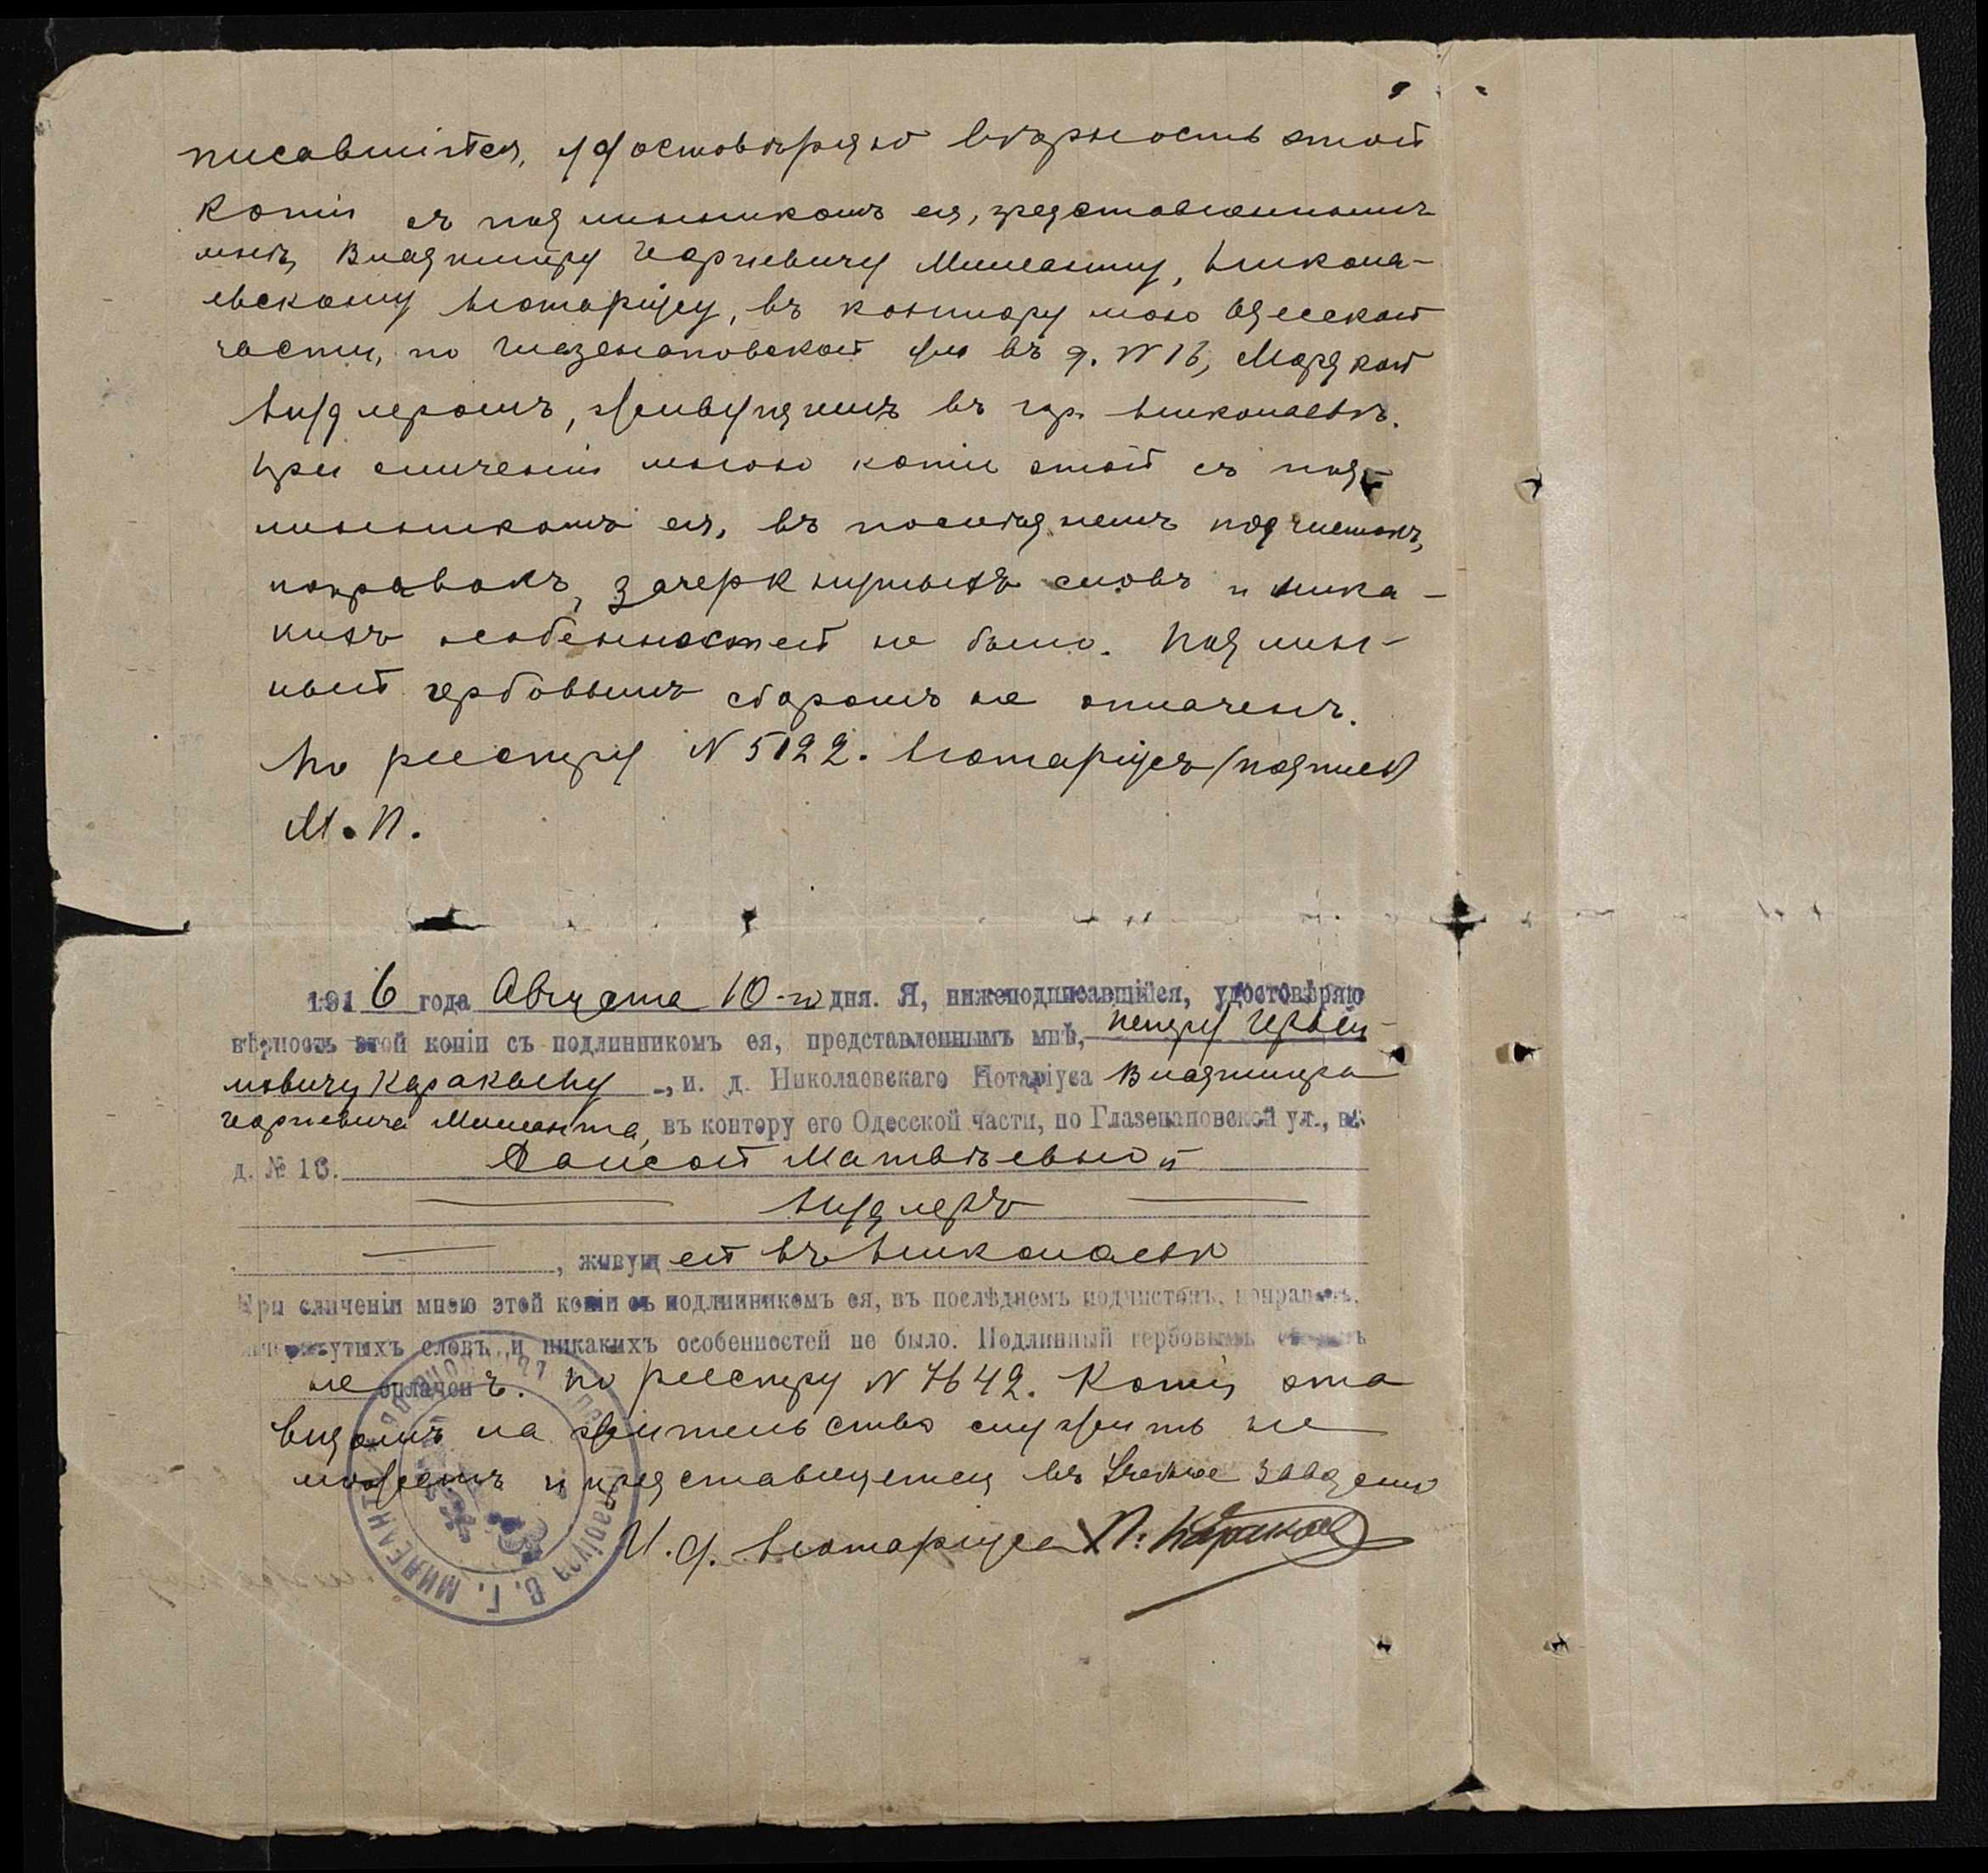 писавшійся, удостовѣряю вѣрность этой
копіи съ подлинникомъ ея, представленнымъ
мнѣ, Владиміру Георгіевичу Миленту, Никола-
евскому Нотаріусу, въ контору мою Одесской
части, по Глазенаповской ул. въ д. № 16,
Нудлеромъ, живущимъ въ гор. Николаевѣ.
При сличеніи мною копіи этой съ под-
линникомъ ея, въ послѣднемъ подчистокъ,
поправокъ, зачеркнутыхъ словъ и ника-
кихъ особенностей не было. Подлин-
ный гербовымъ сборомъ не оплаченъ.
По реестру № 5122. Нотаріусъ (подпись)
М. П.
1916 года Августа 10-го дня. Я, нижеподписавшійся, удостовѣряю
вѣрность этой копіи съ подлинникомъ ея, представленнымъ мнѣ, Петру
, и. д. Николаевскаго Нотаріуса Владиміра
Георгіевича въ контору его Одесской части, по Глазенаповской ул., въ
д. № 16. Матвѣевной
Нудлеръ
, живущей въ Николаевѣ
При сличеніи мною этой копіи съ подлинникомъ ея, въ послѣднемъ подчистокъ, поправокъ,
зачеркнутыхъ словъ и никакихъ особенностей не было. Подлинный гербовымъ сборомъ
не оплаченъ. По реестру № 7642. Копія эта
видомъ на жительство служить не
можетъ и представляется въ Учебное заведеніе
И. д. Нотаріуса П.